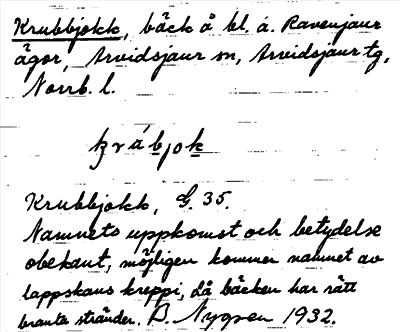 Krubbjokk, bäck å bl. á. Ravenjaur
ägor, Arvidsjaur sn, Arvidsjaur tg,
Norrb. l.
krábjok
Krubbjokk, G. 35.
Namnets uppkomst och betydelse
obekant, möjligen kommer namnet av
lappskans kreppi, då bäcken har rätt
branta stränder. B. Nygren 1932.